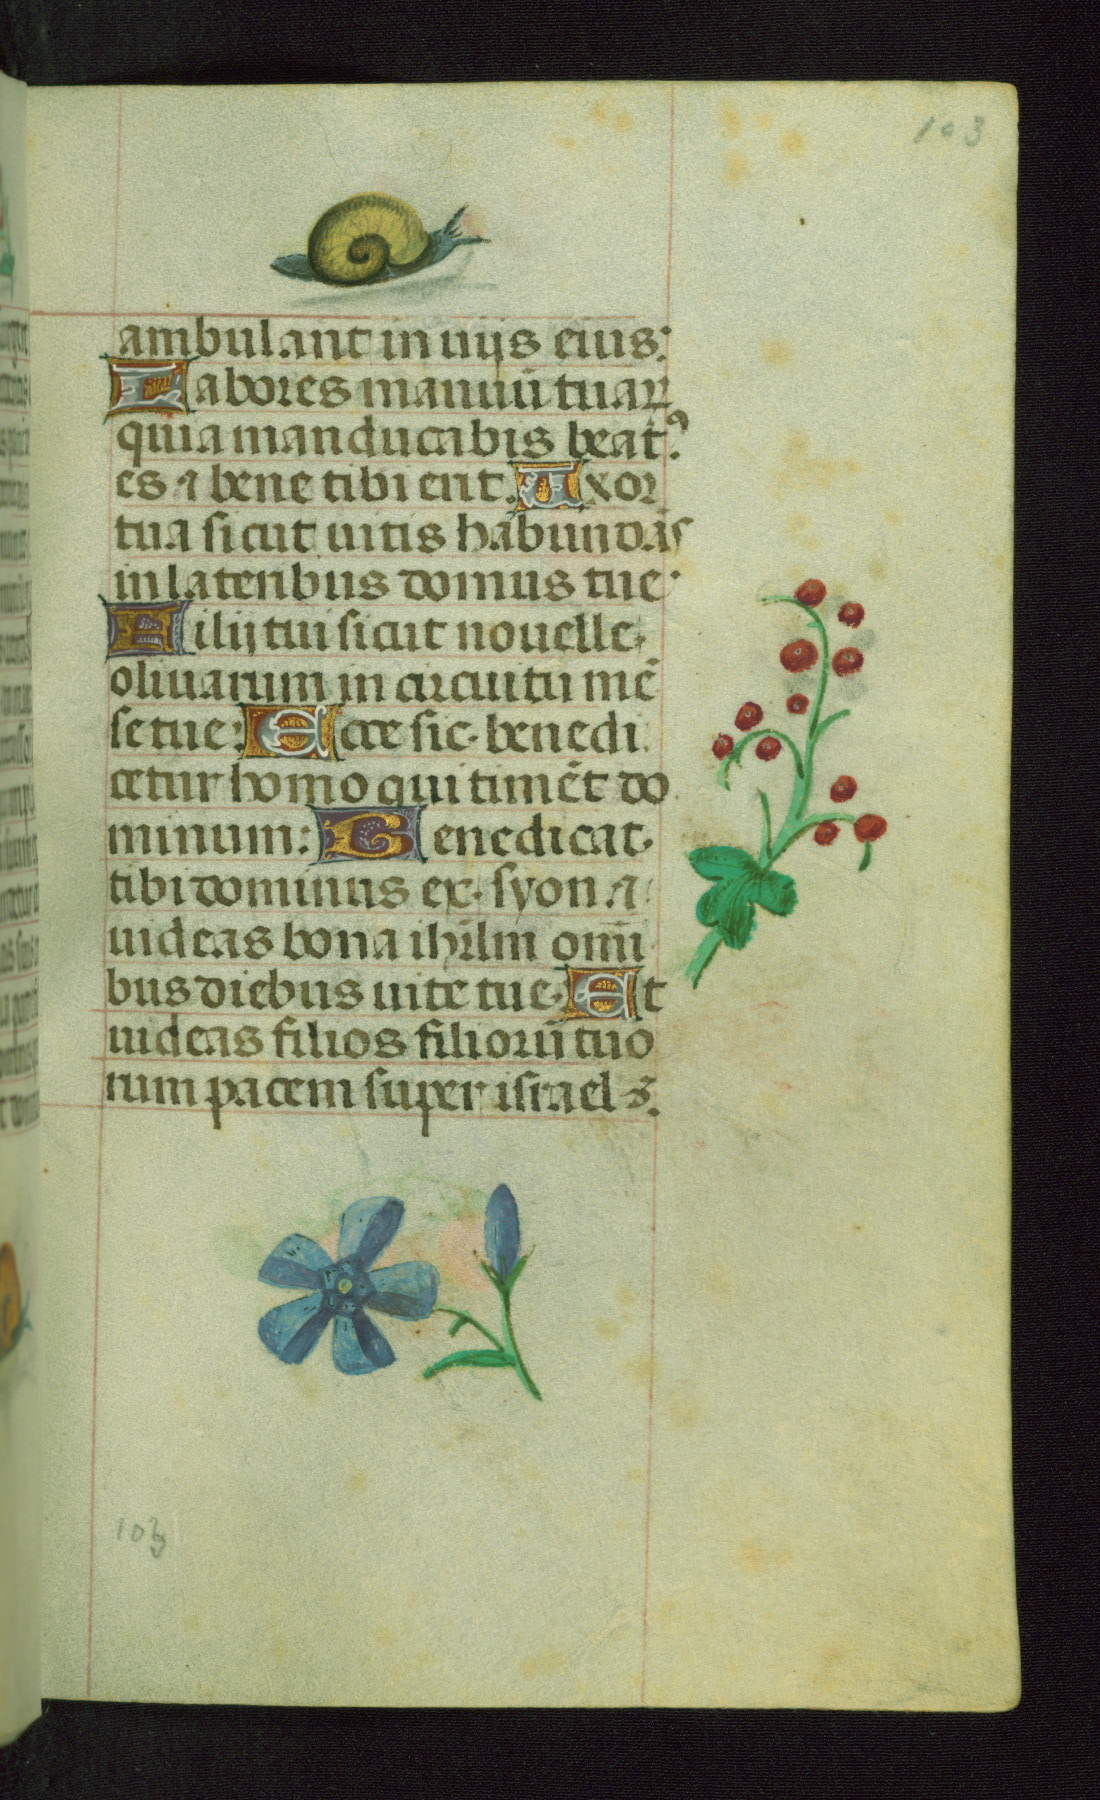 103
ambulant in uijs eius:
Labores manuū tuaꝝ
quia manducabis beatꝰ:
es ⁊ bene tibi erit. Uxor
tua sicut uitis habundās
in lateribus domus tue:
Filij tui sicut nouelle
oliuarum in circuitu mē
se tue: Ecce sic benedi
cetur homo qui timēt do
minum: Benedicat
tibi dominus ex syon ⁊
uideas bona ihrlm om̄i
bus diebus uite tue. Et
uideas filios filiorū tuo
rum pacem super israel
103